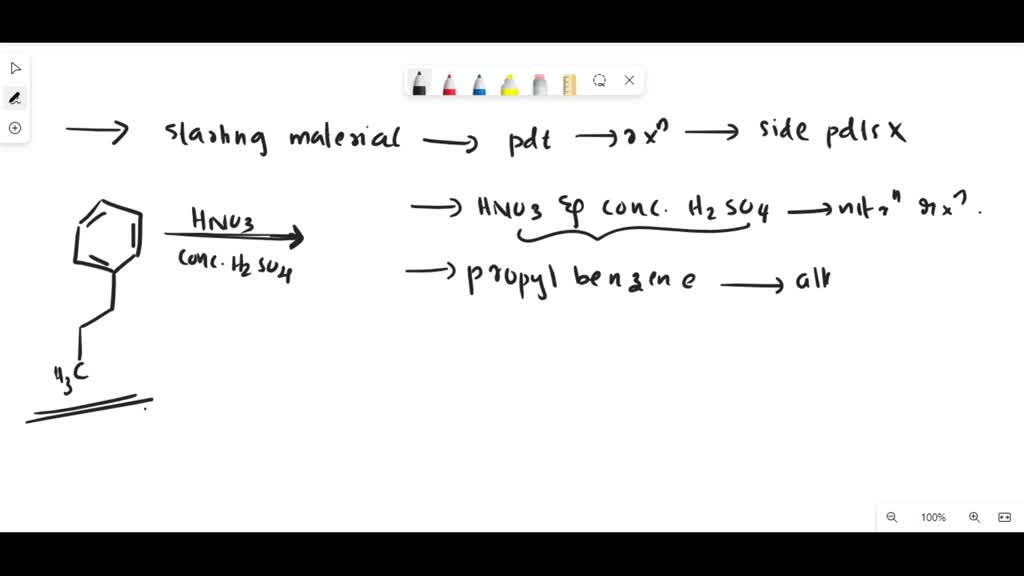 ⟶ starting material ⟶ pdt ⟶ rxⁿ ⟶ side pdts X
HNO3
conc. H2SO4
H3C
⟶ HNO3 & conc. H2SO4 ⟶ nitrⁿ rxⁿ.
⟶ propyl benzene ⟶ alk
100%